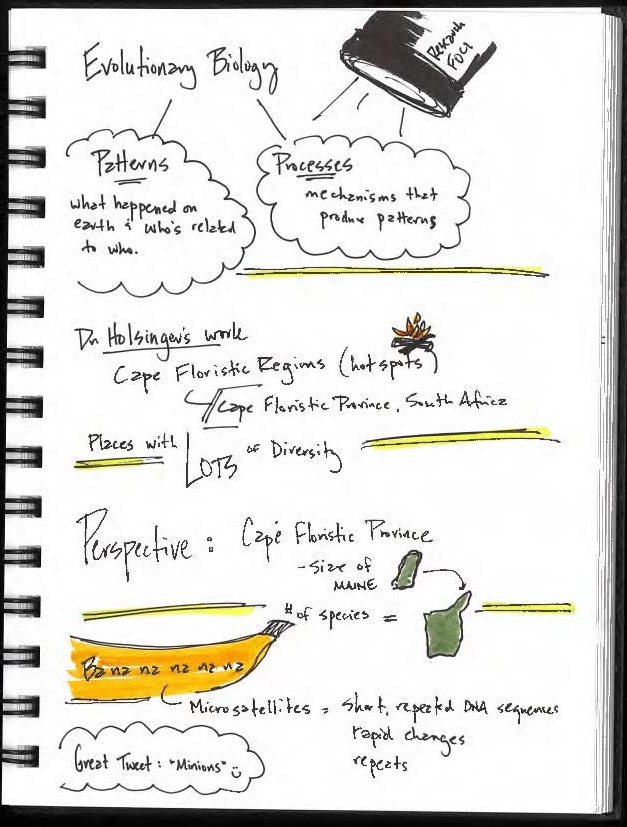 Evolutionary Biology
Research
Foci
Patterns
what happened on
earth & who's related
to who.
Processes
mechanisms that
produce patterns
Dr Holsinger's work
Cape Floristic Regions (hotspots)
Cape Floristic Province, South Africa
Places with LOTS of Diversity
Perspective: Cape Floristic Province
- Size of
MAINE
# of species =
Banana na na na na
Microsatellites = short, repeated DNA sequences
rapid changes
repeats
Great Tweet: "Minions"